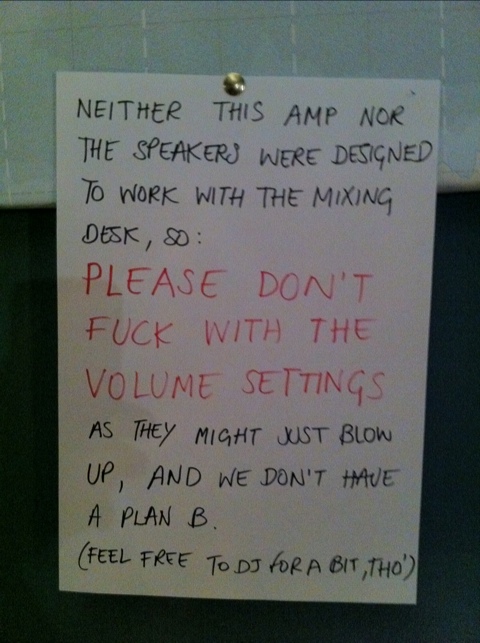 NEITHER THIS AMP NOR
THE SPEAKERS WERE DESIGNED
TO WORK WITH THE MIXING
DESK, SO:
PLEASE DON'T
FUCK WITH THE
VOLUME SETTINGS
AS THEY MIGHT JUST BLOW
UP, AND WE DON'T HAVE
A PLAN B.
(FEEL FREE TO DJ FOR A BIT, THO')